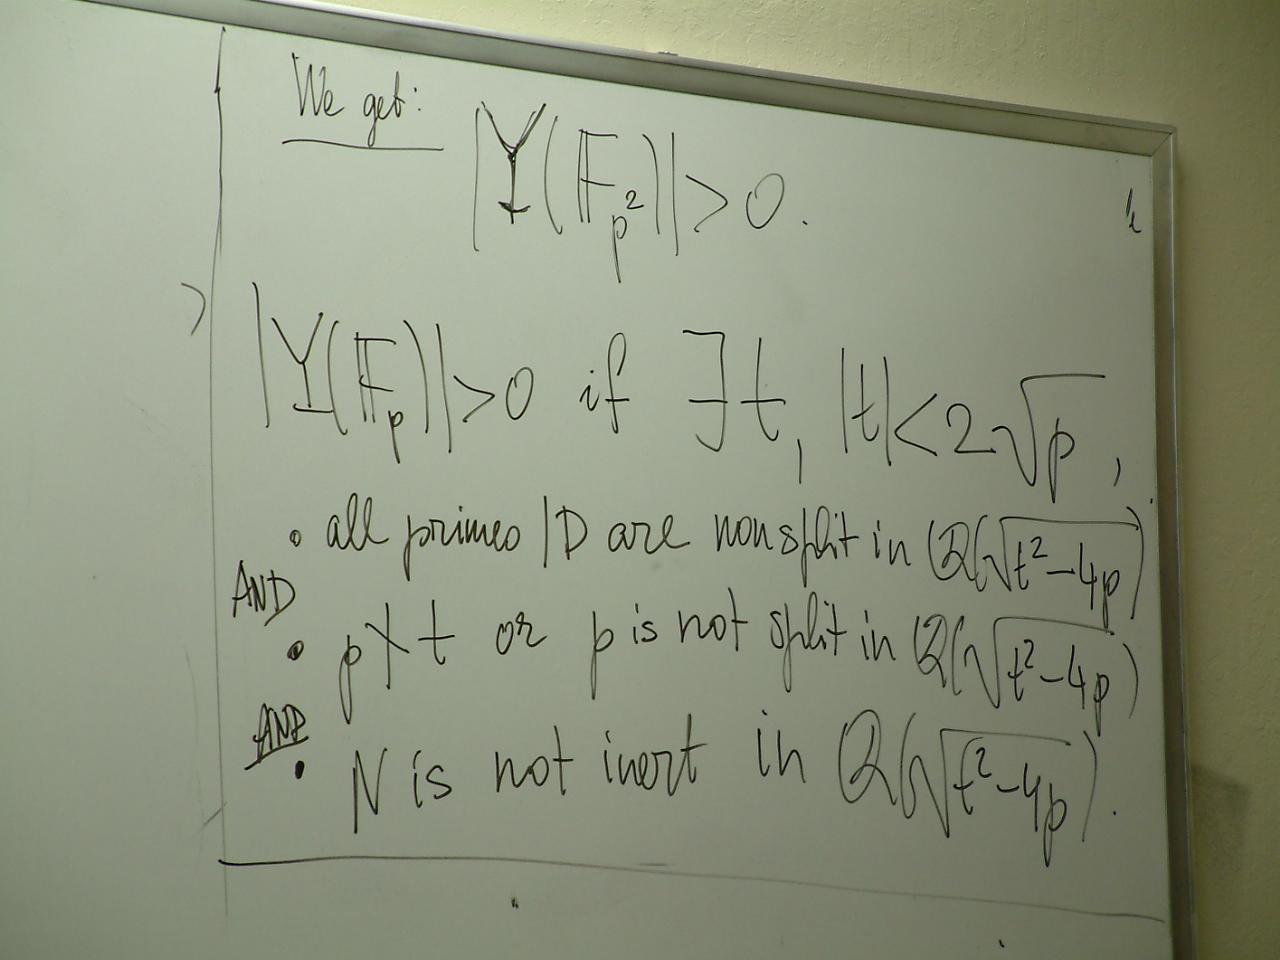 We get:
|Y(𝔽_{p^2})| > 0.
|Y(𝔽_p)| > 0 if ∃ t, |t| < 2√p,
• all primes | D are nonsplit in ℚ(√(t²-4p))
AND
• p ∤ t or p is not split in ℚ(√(t²-4p))
AND
• N is not inert in ℚ(√(t²-4p)).